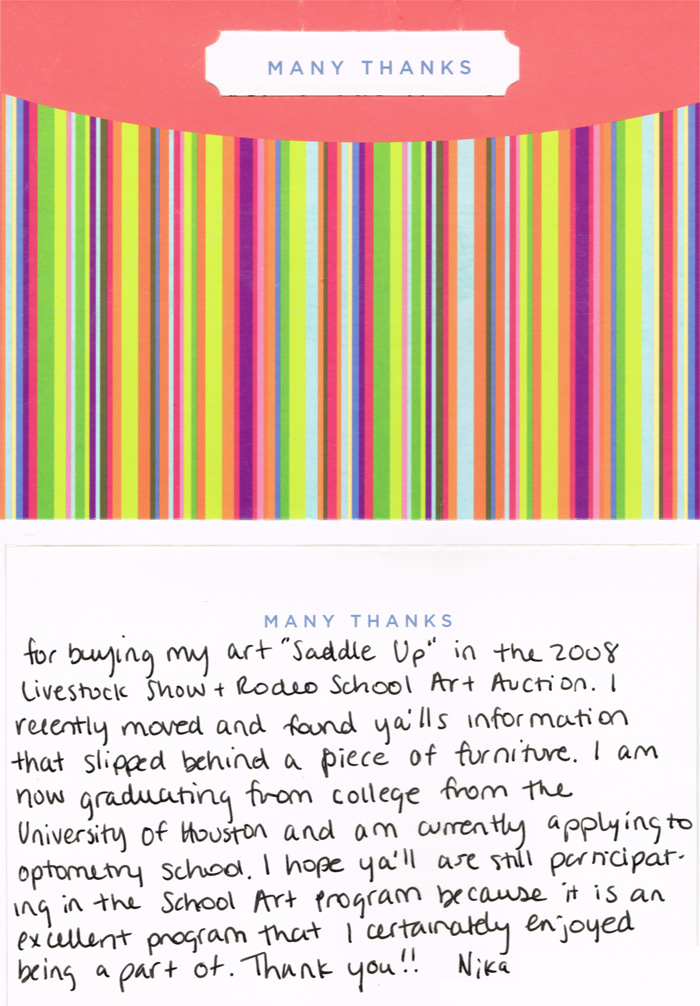 MANY THANKS
MANY THANKS
for buying my art "Saddle Up" in the 2008
Livestock Show + Rodeo School Art Auction. I
recently moved and found ya'lls information
that slipped behind a piece of furniture. I am
now graduating from college from the
University of Houston and am currently applying to
optometry school. I hope ya'll are still participat-
ing in the School Art program because it is an
excellent program that I certainately enjoyed
being a part of. Thank you!! Nika